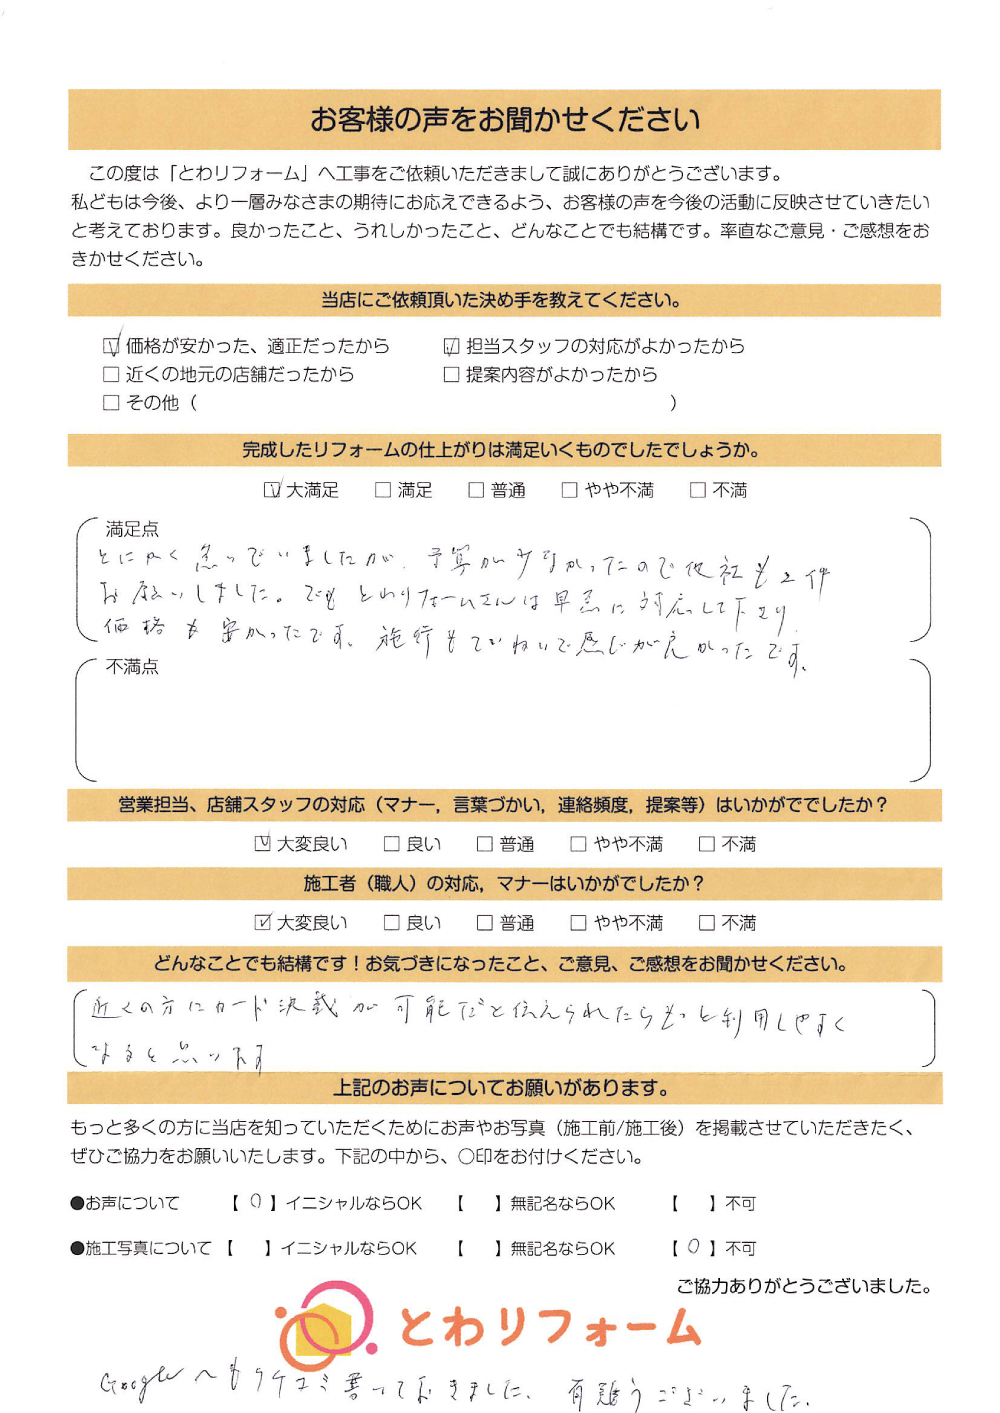 お客様の声をお聞かせください
この度は「とわリフォーム」へ工事をご依頼いただきまして誠にありがとうございます。
私どもは今後、より一層みなさまの期待にお応えできるよう、お客様の声を今後の活動に反映させていきたい
と考えております。良かったこと、うれしかったこと、どんなことでも結構です。率直なご意見・ご感想をお
きかせください。
当店にご依頼頂いた決め手を教えてください。
☑ 価格が安かった、適正だったから ☑ 担当スタッフの対応がよかったから
□ 近くの地元の店舗だったから □ 提案内容がよかったから
□ その他（ ）
完成したリフォームの仕上がりは満足いくものでしたでしょうか。
☑ 大満足 □ 満足 □ 普通 □ やや不満 □ 不満
満足点
とにかく急っでいましたが、予算が少なかったので他社も2件
お願いしました。でも とわリフォームさんは早急に対応して下さり
価格も安かったです。施行もていねいで感じが良かったです。
不満点
営業担当、店舗スタッフの対応（マナー，言葉づかい，連絡頻度，提案等）はいかがででしたか？
☑ 大変良い □ 良い □ 普通 □ やや不満 □ 不満
施工者（職人）の対応，マナーはいかがでしたか？
☑ 大変良い □ 良い □ 普通 □ やや不満 □ 不満
どんなことでも結構です！お気づきになったこと、ご意見、ご感想をお聞かせください。
近くの方にカード決裁が可能だと伝えられたらもっと利用しやすく
なると思います
上記のお声についてお願いがあります。
もっと多くの方に当店を知っていただくためにお声やお写真（施工前/施工後）を掲載させていただきたく、
ぜひご協力をお願いいたします。下記の中から、〇印をお付けください。
●お声について 【 〇 】イニシャルならOK 【 】無記名ならOK 【 】不可
●施工写真について 【 】イニシャルならOK 【 】無記名ならOK 【 〇 】不可
ご協力ありがとうございました。
とわリフォーム
Googleへもクチコミ書っておきました、有難うございました。